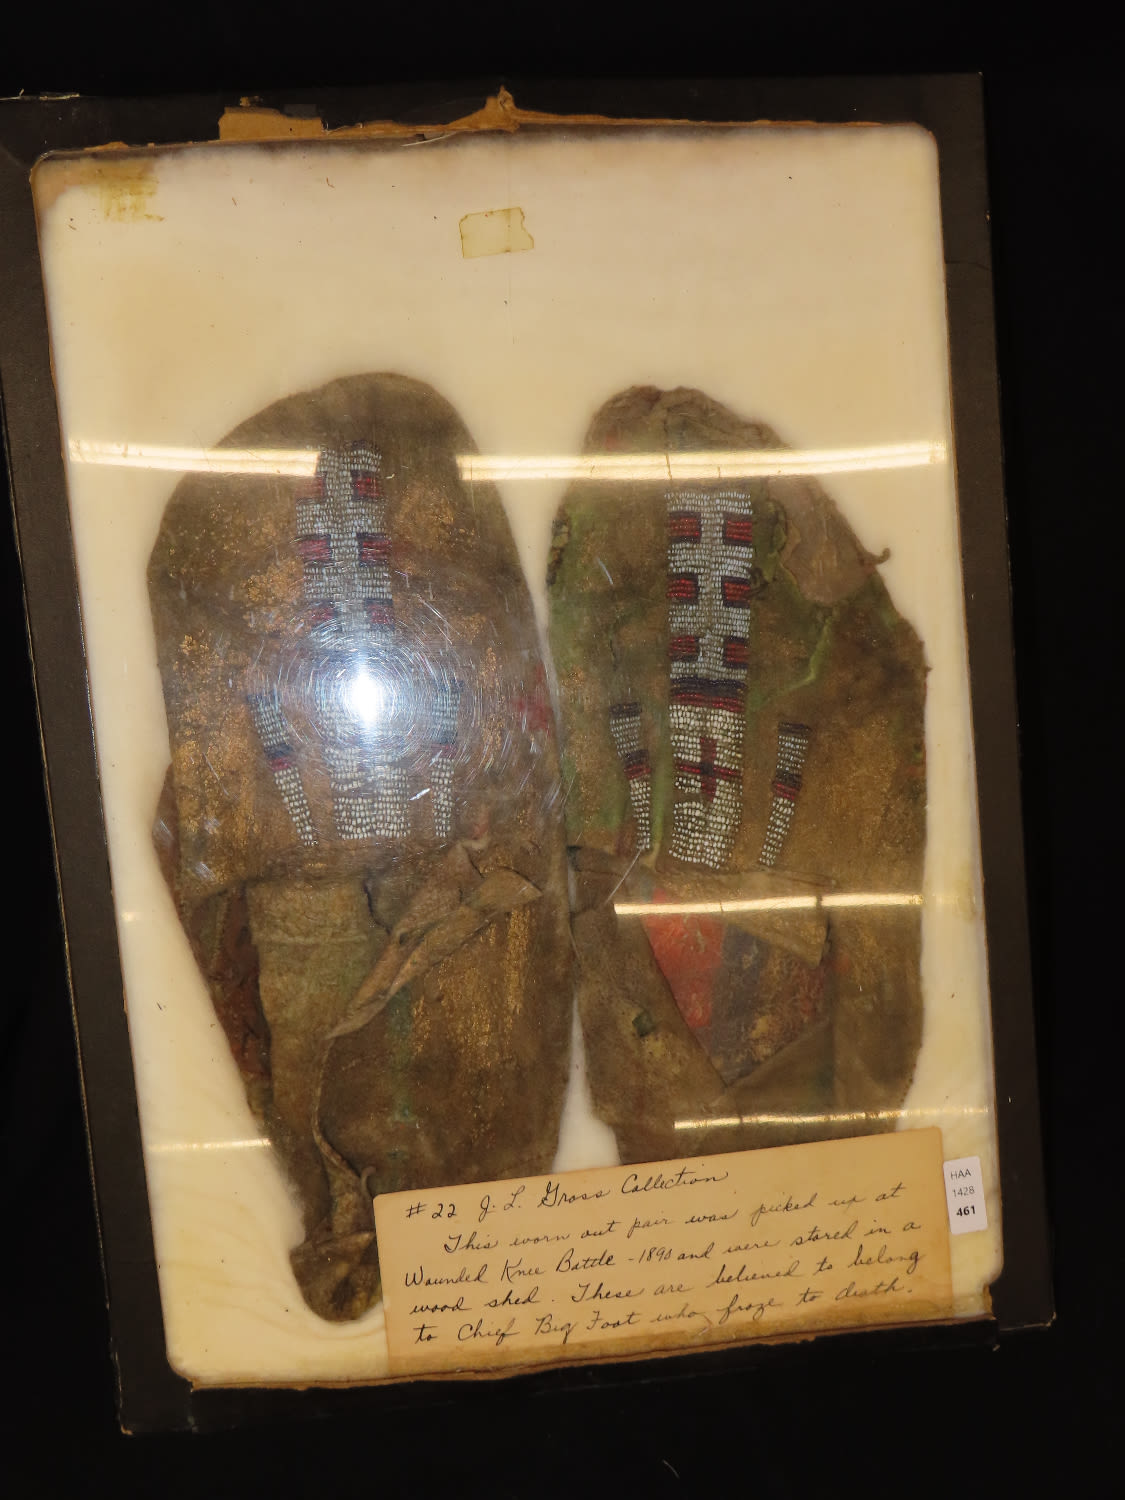 #22 J. L. Gross Collection
This worn out pair was picked up at
Wounded Knee Battle - 1890 and were stored in a
wood shed. These are believed to belong
to Chief Big Foot who froze to death.
HAA
1428
461